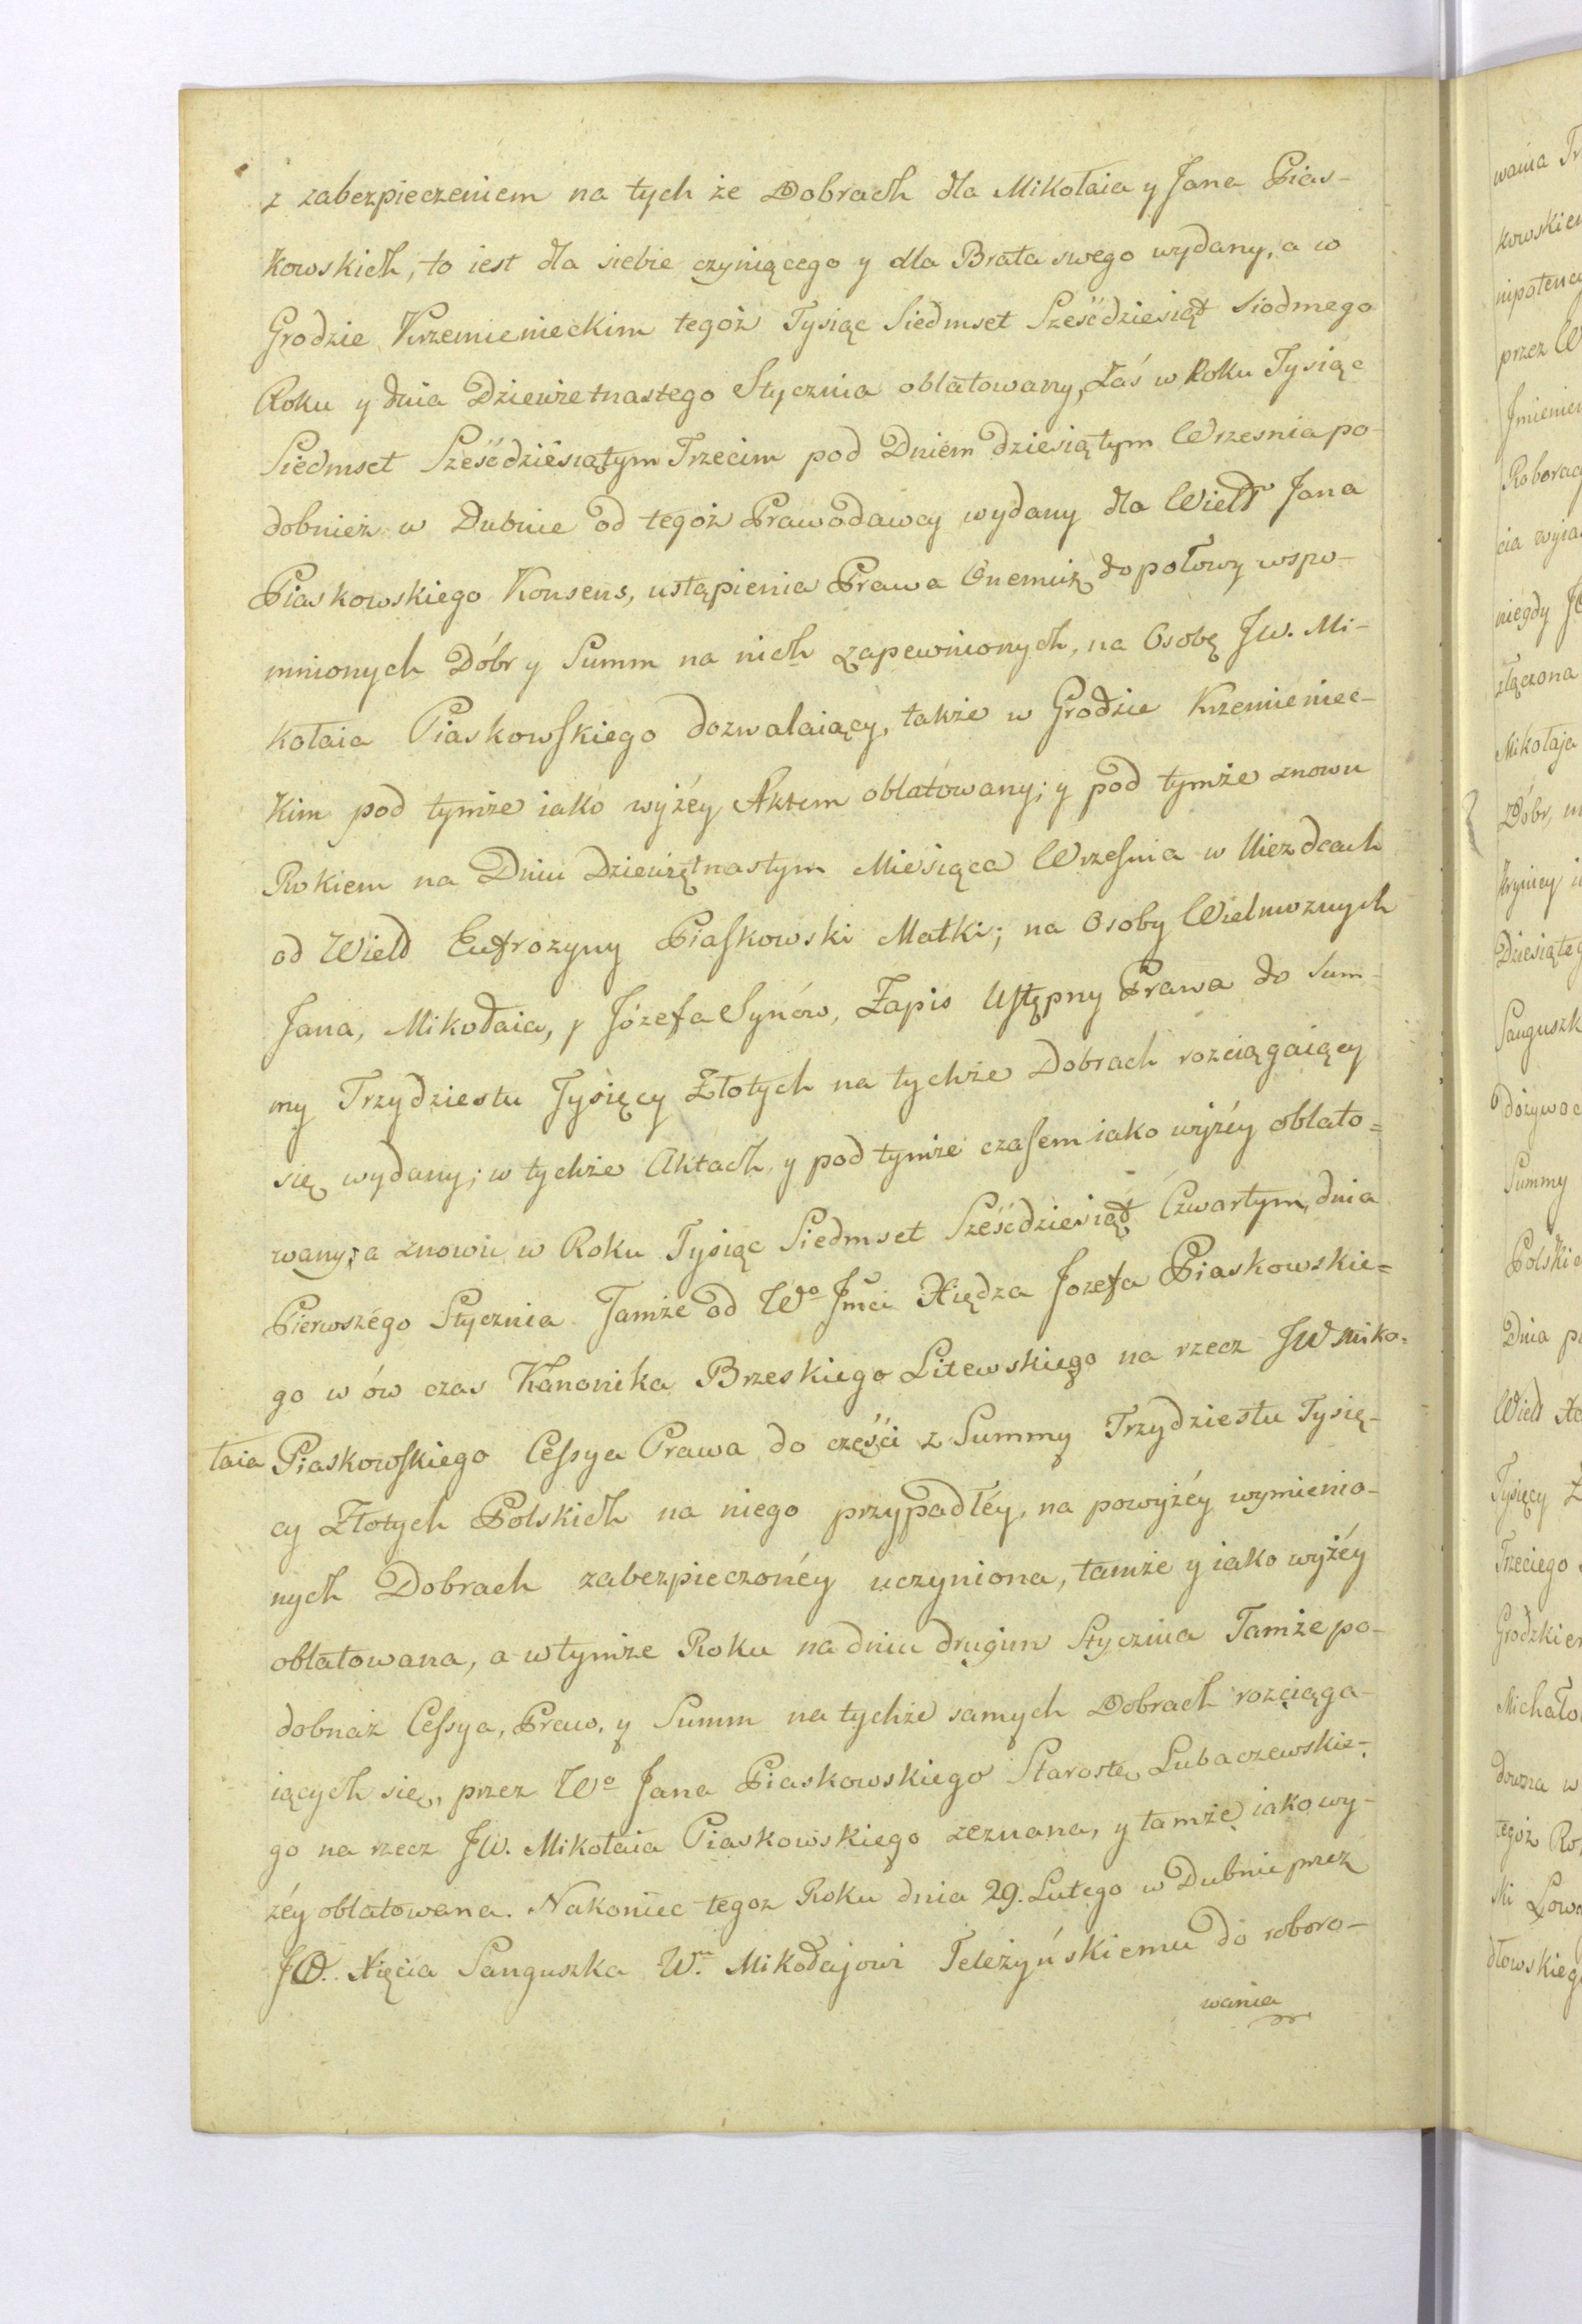 z zabezpieczeniem na tych że Dobrach dla Mikołaia y Jana Pias-
kowskich, to iest dla siebie czyniącego y dla Brata swego wydany, a w
Grodzie Krzemienieckim tegoż Tysiąc Siedmset Sześćdziesiąt Siodmego
Roku y dnia Dziewietnastego Stycznia oblatowany, Zaś w Roku Tysiąc
Siedmset Sześćdziesiątym Trzecim pod Dniem dziesiątym Wrzesnia po-
dobnież w Dubnie od tegoż Prawodawcy wydany dla Wield Jana
Piaskowskiego Konsens, ustąpienia Prawa Onemuż do połowy wspo-
mnionych Dóbr y Summ na nich zapewnionych, na Osobę JW. Mi-
kołaia Piaskowskiego dozwalaiący, także w Grodzie Krzemieniec-
kim pod tymże iako wyżéy Aktem oblatowany; y pod tymże znowu
Rokiem na Dniu Dziewiętnastym Miesiąca Wrzesnia w Uiezdcach
od Wield Eufrozyny Piaskowski Matki; na Osoby Wielmoznych
Jana, Mikołaia, y Józefa Synów, Zapis Ustępny Prawa do Sum-
my Trzydziestu Tysięcy Złotych na tychże Dobrach rozciągaiący
się wydany; w tychże Aktach, y pod tymże czasem iako wyżéy oblato=
wany; a znowu w Roku Tysiąc Siedmset Sześćdziesiąt Czwartym, dnia
Pierwszégo Stycznia Tamże od Wo Jmci Xiędza Jozefa Piaskowskie=
go w ów czas Kanonika Brzeskiego Litewskiego na rzecz JW Miko=
łaia Piaskowskiego Cessya Prawa do części z Summy Trzydziestu Tysię-
cy Złotych Polskich na niego przypadłéy, na powyżéy wymienio-
nych Dobrach zabezpieczonéy uczyniona, tamże y iako wyżéy
oblatowana, a w tymże Roku na dniu drugim Stycznia Tamże po-
dobnaż Cessya, Praw, y Summ na tychże samych Dobrach rozciąga-
iących się, przez Wo Jana Piaskowskiego Starostę Lubaczewskie-
go na rzecz JW. Mikołaia Piaskowskiego zeznana, y tamże iako wy-
zéy oblatowana. Nakoniec tegoz Roku dnia 29. Lutego w Dubnie przez
JO. Xięcia Sanguszka W. Mikołajowi Teleżyńskiemu do roboro-
wania
kowskie
przez W
Mikołaja
Dóbr,
Dziesiąteg
Sanguszk
Summy
Polskie
Dnia
Wield
Tysięcy
Trzeciego
Michało
tegoż Ro